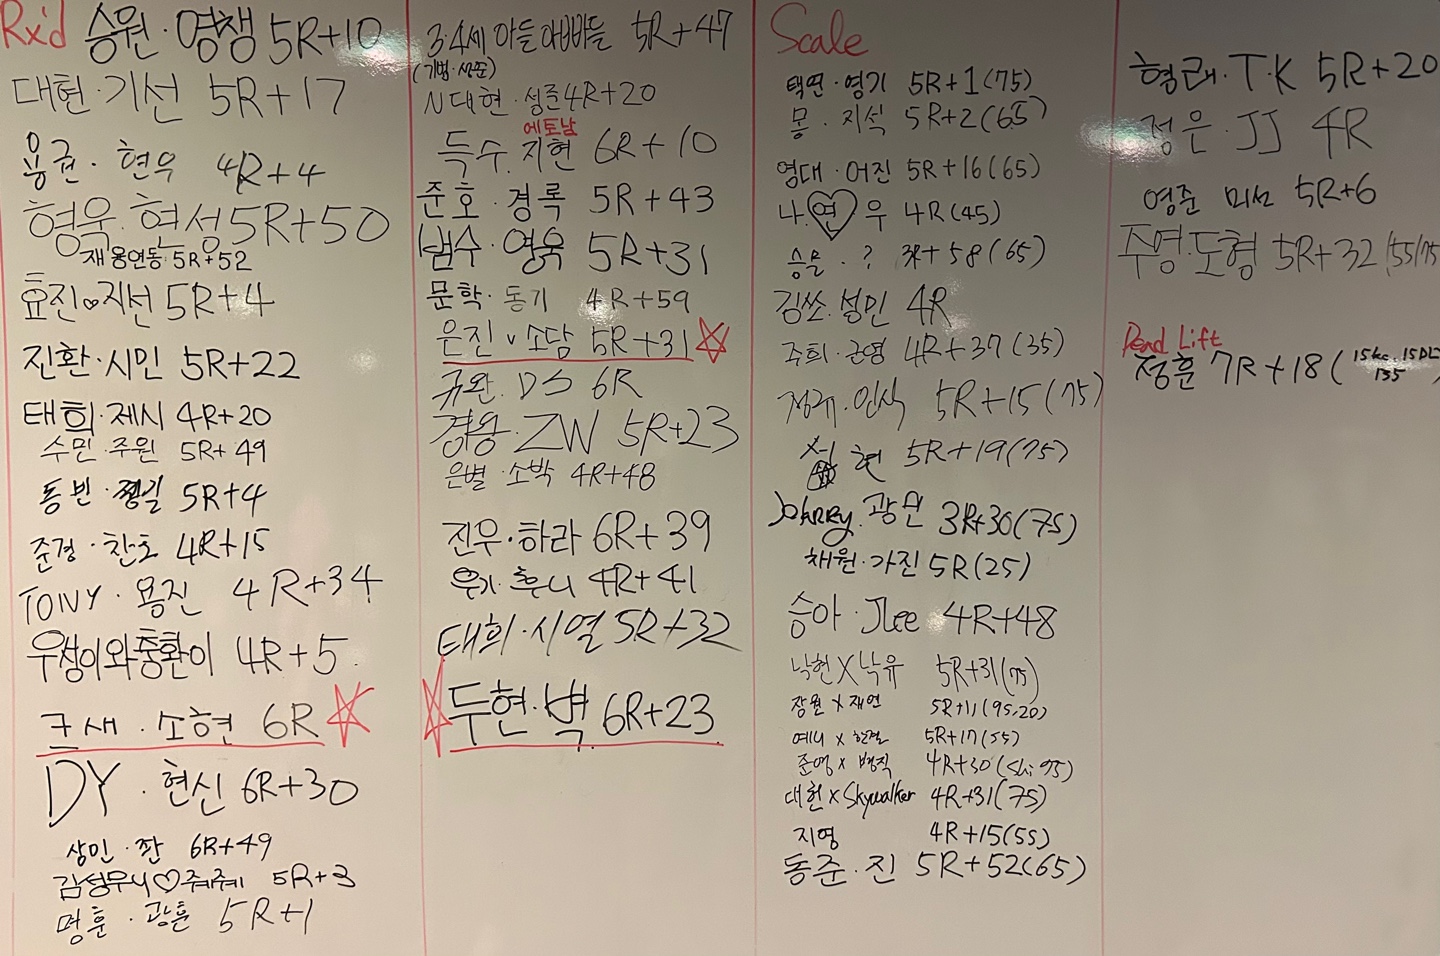 Rx'd 승원·영쟁 5R+10
대현·기선 5R+17
용권·현우 4R+4
형욱·현서 5R+50
재용연동 5R+52
효진♡지선 5R+4
진환·시민 5R+22
태희·제시 4R+20
수민·주원 5R+49
동빈·정길 5R+4
준경·찬호 4R+15
TONY·용진 4R+34
우성이와충환이 4R+5
소현 6R
DY·현신 6R+30
상민·짠 6R+49
김성무니♡줴줴 5R+3
명훈·광훈 5R+1
3·4세 아들 아빠들 5R+47
(기범·성준)
N대현·성준 4R+20
에토남
득수·지현 6R+10
준호·경록 5R+43
뱀수·영욱 5R+31
문학·동기 4R+59
은진 v 소담 5R+31
규완·DS 6R
경용·ZW 5R+23
은별·소박 4R+48
진우·하라 6R+39
우기·후니 4R+41
태희·시열 5R+32
두현·벽 6R+23
Scale
택연·영기 5R+1(75)
몽·지석 5R+2(65)
영대·어진 5R+16(65)
나·연♡우 4R(45)
승물·? +58(65)
김쏘·설민 4R
주희·군영 4R+37(35)
정규·인식 5R+15(75)
현 5R+19(75)
광민 3R+30(75)
채원·가진 5R(25)
승아·JLee 4R+48
낙현X낙유 5R+31(75)
장원x재연 5R+11(95,20)
예니x한결 5R+17(55)
준영x병직 4R+30(
대헌xSkywalker 4R+31(75)
지영 4R+15(55)
동준·진 5R+52(65)
형래·T·K 5R+20
정은·JJ 4R
영준 미선 5R+6
주영·도형 5R+32(55/75
Dead Lift
정훈 7R+18(
135